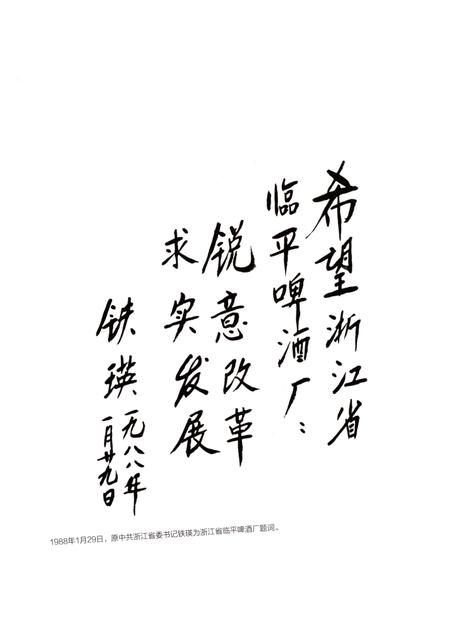 希望浙江省
临平啤酒厂：
锐意改革
求实发展
铁瑛
一九八八年
一月廿九日
1988年1月29日，原中共浙江省委书记铁瑛为浙江省临平啤酒厂题词。